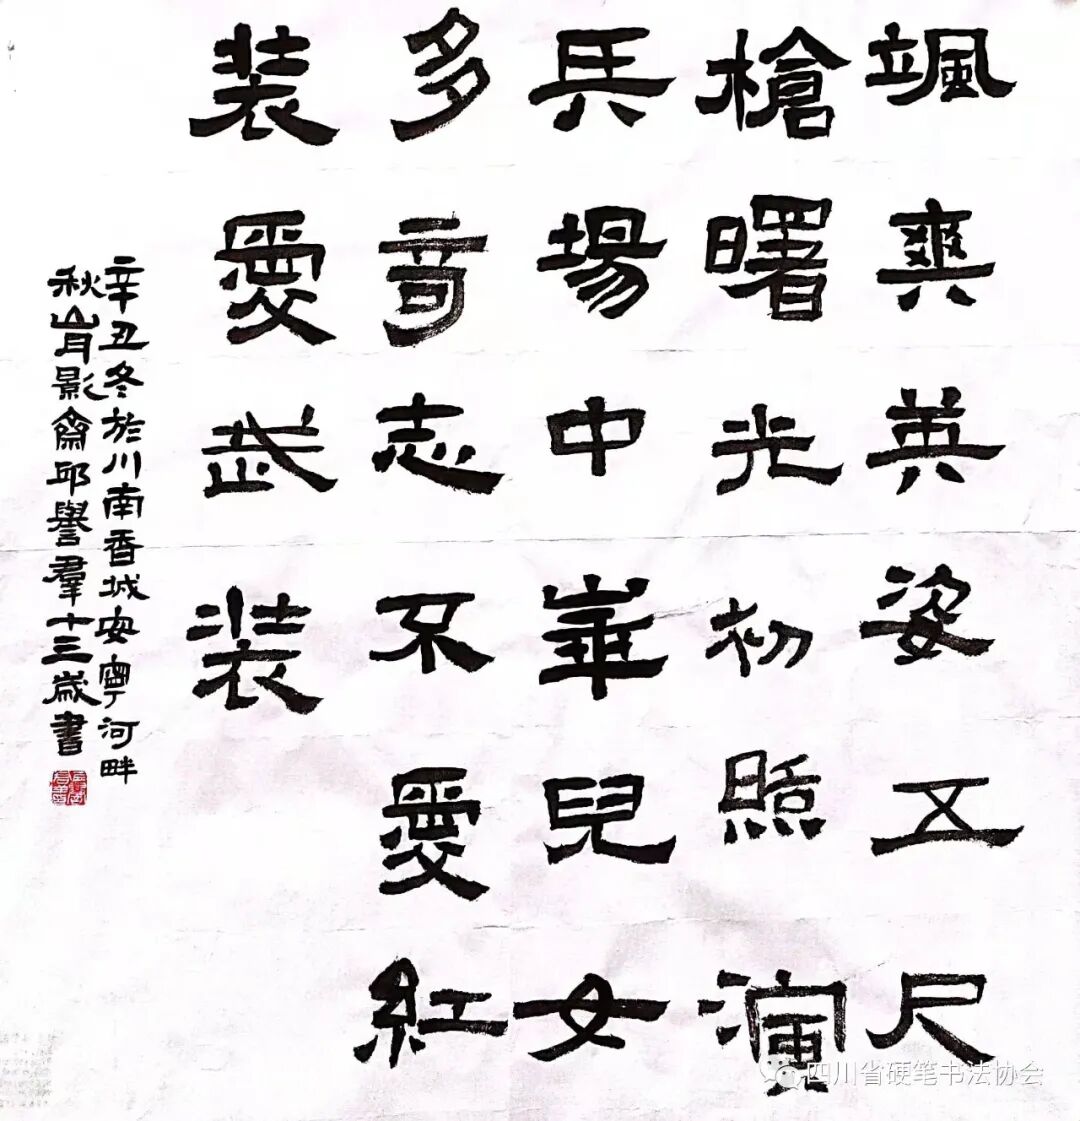 颯爽英姿五尺
槍曙光初照演
兵場中華兒女
多奇志不愛紅
装愛武装
辛丑冬於川南香城安寧河畔
秋山月影齋邱譽羣十三歲書
四川省硬笔书法协会